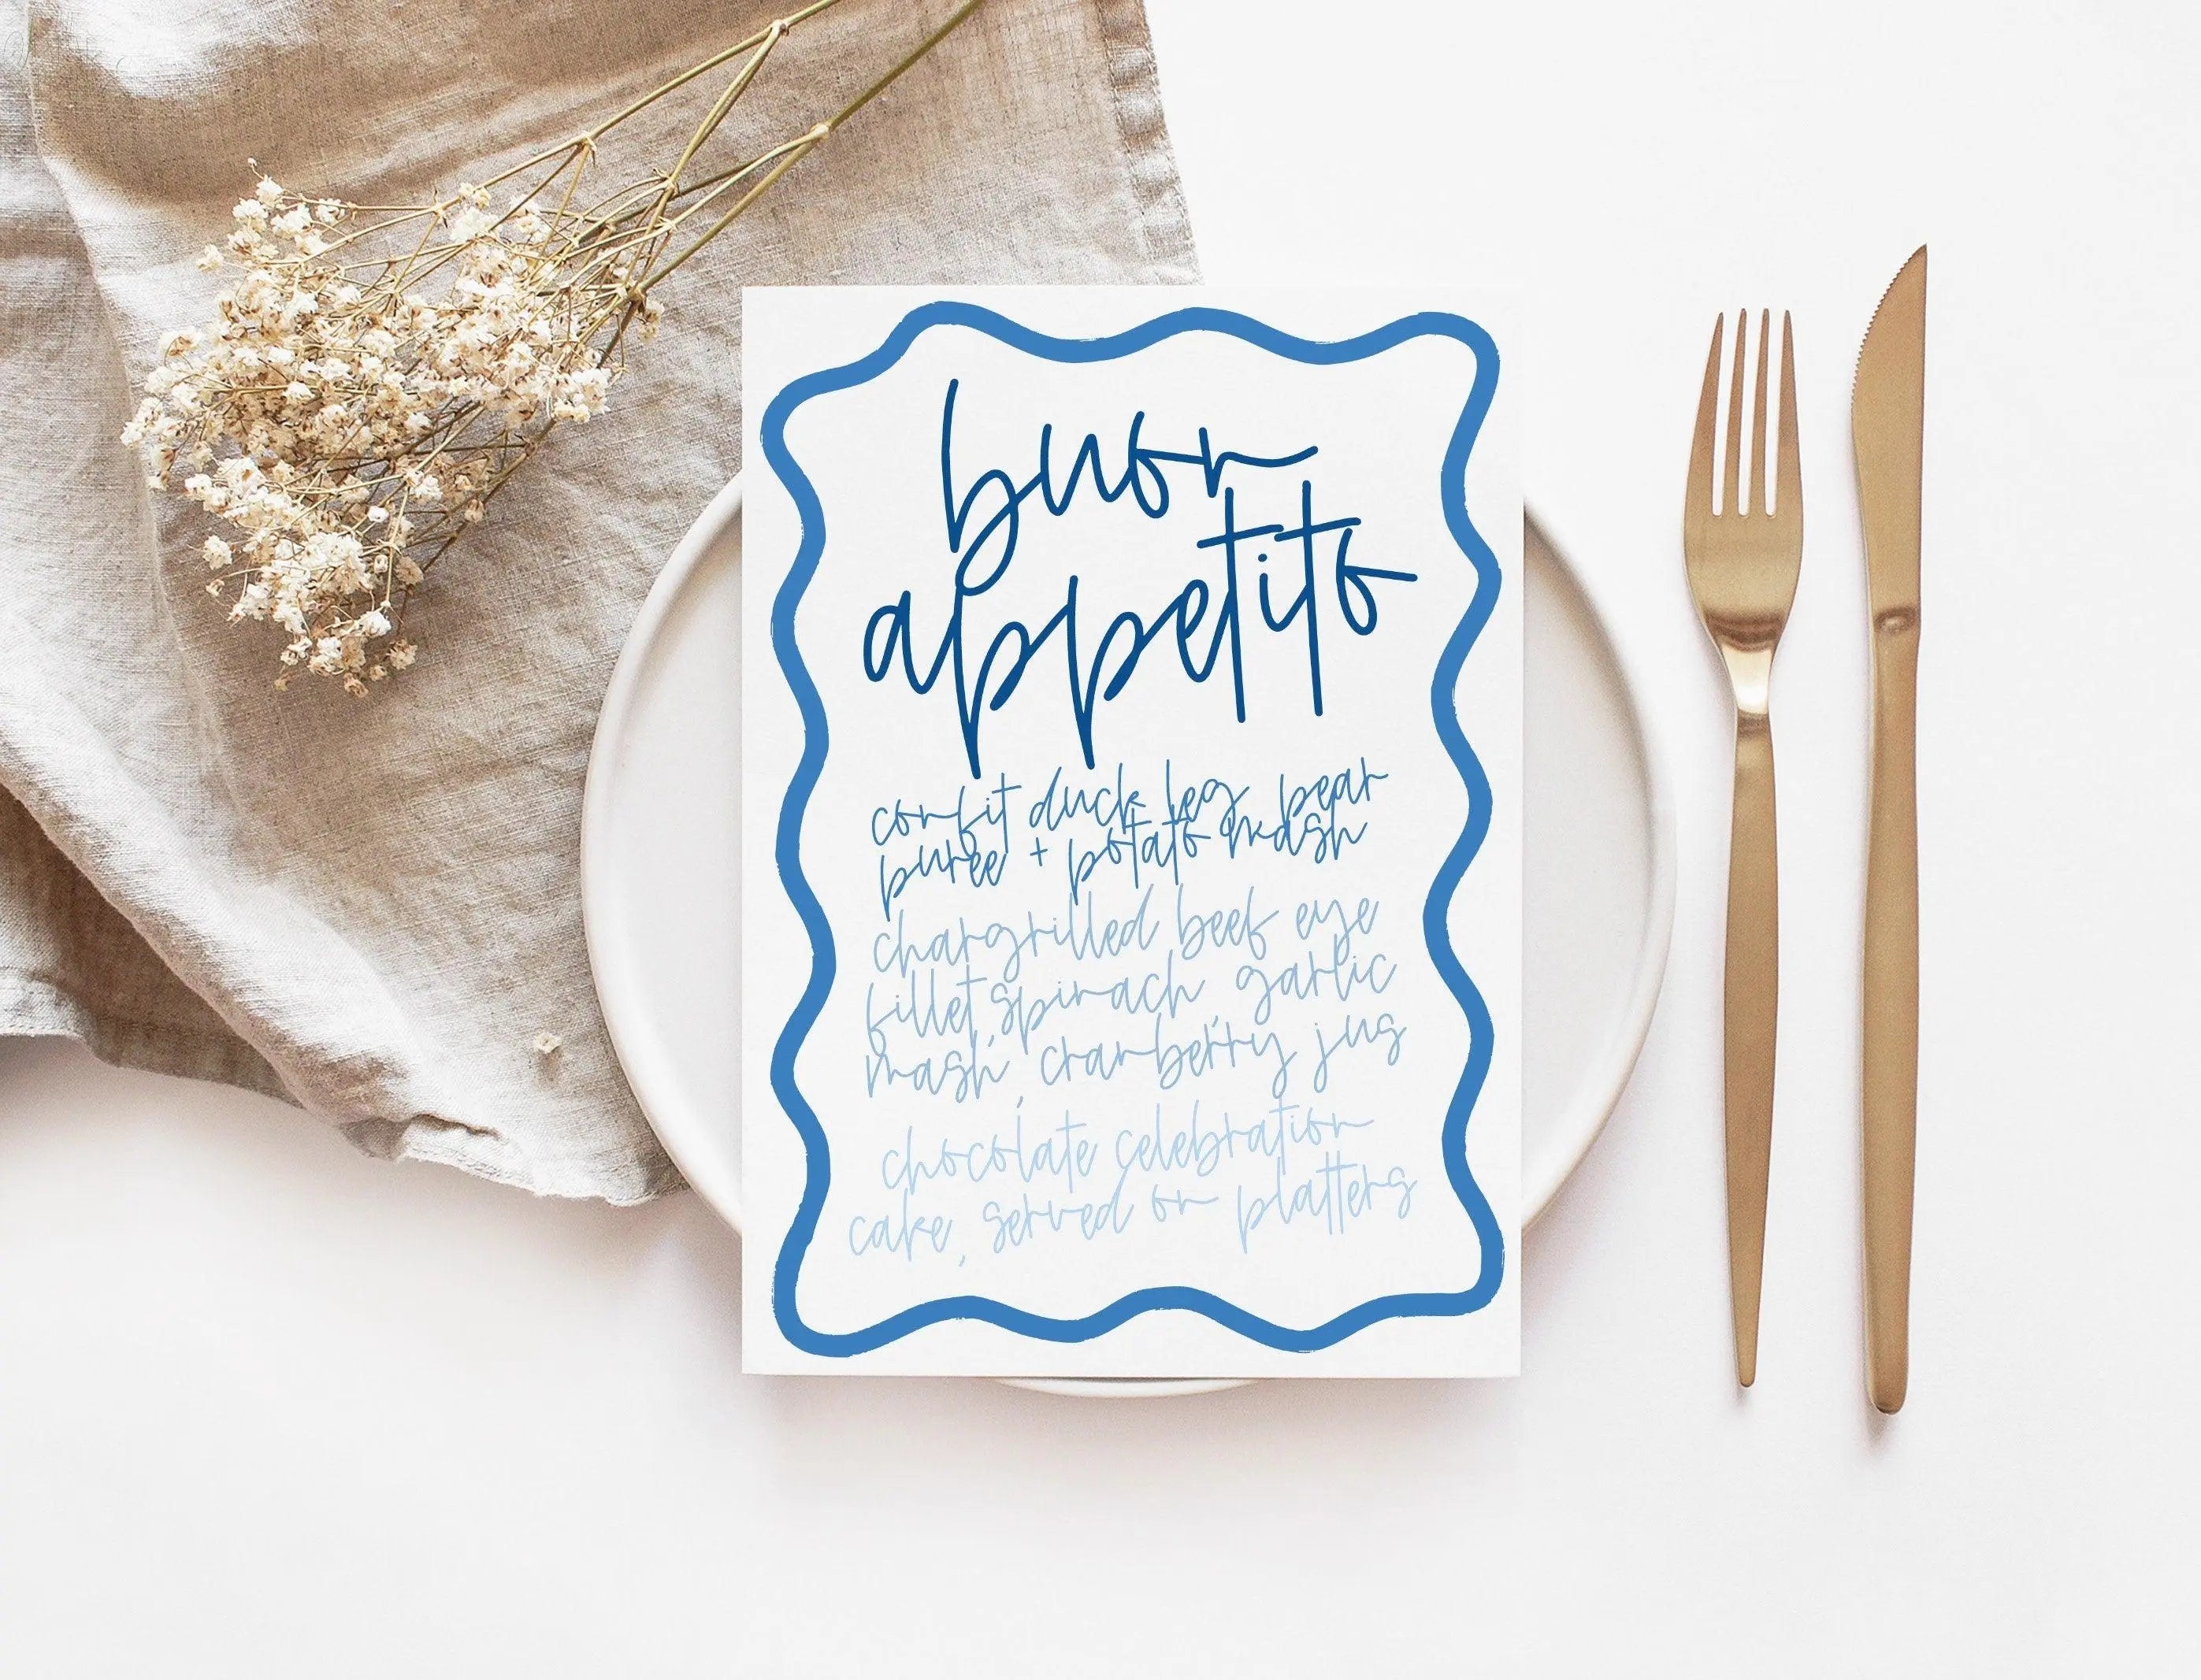 buon
appetito
confit duck leg, pear
puree + potato mash
chargrilled beef eye
fillet, spinach, garlic
mash, cranberry jus
chocolate celebration
cake, served on platters